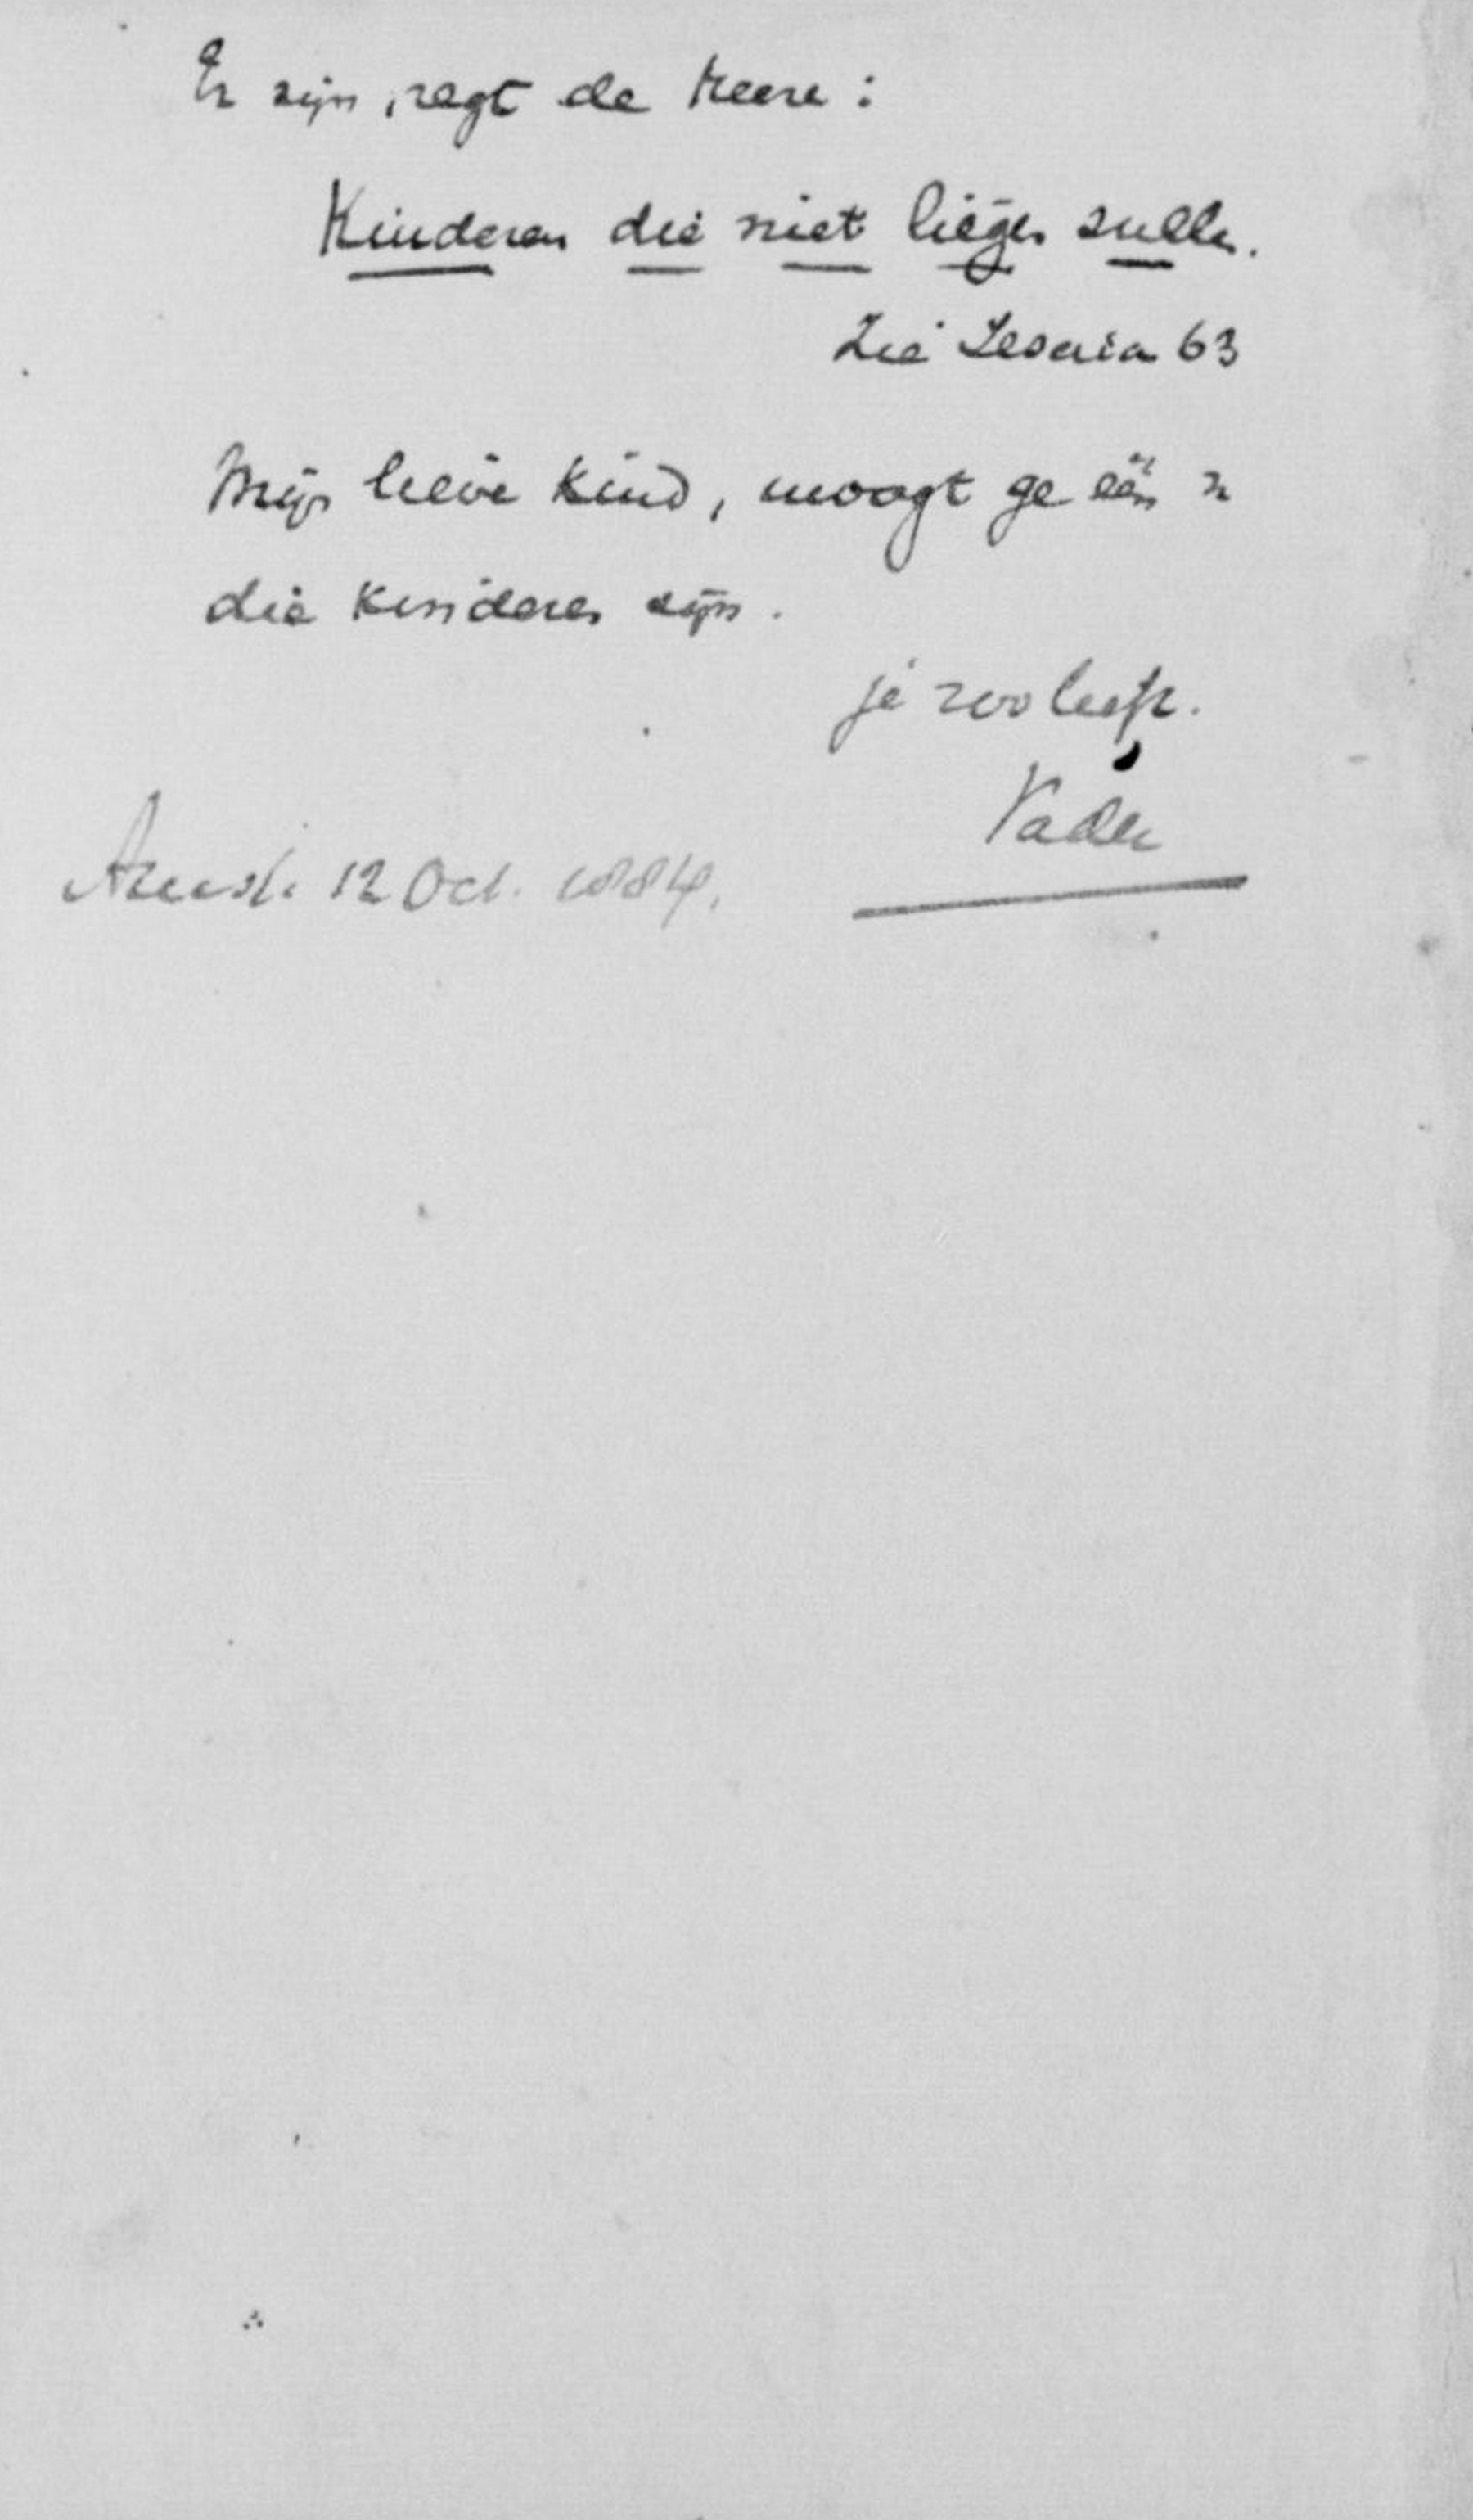 Er zijn, zegt de Heere:
Kinderen die niet liegen zullen.
Zie Jesaia 63
Mijn lieve kind, moogt ge één
die kinderen zijn.
je zoo liefh.
Vader
Amst. 12 Oct. 1884.